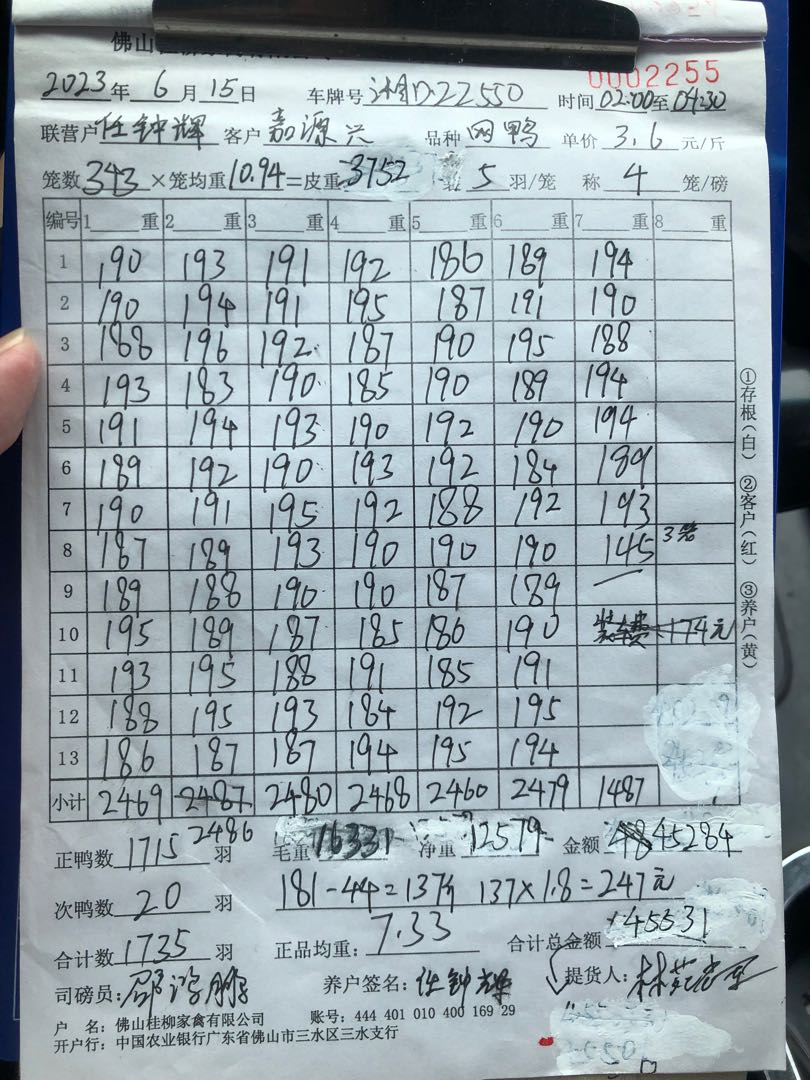 佛山
0002255
2023年 6月 15日 车牌号 湘D·22550 时间 02:00至04:30
联营户 任钟辉 客户 嘉源兴 品种 网鸭 单价 3.6 元/斤
笼数 343 ×笼均重 10.94 =皮重 3752 5 羽/笼 称 4 笼/磅
编号 1 重 2 重 3 重 4 重 5 重 6 重 7 重 8 重
1 190 193 191 192 186 189 194
2 190 194 191 195 187 191 190
3 188 196 192 187 190 195 188
4 193 183 190 185 190 189 194
5 191 194 193 190 192 190 194
6 189 192 190 193 192 184 189
7 190 191 195 192 188 192 193
8 187 189 193 190 190 190 145 3笼
9 189 188 190 190 187 189 —
10 195 189 187 185 186 190 174元
11 193 195 188 191 185 191
12 188 195 193 184 192 195
13 186 187 187 194 195 194
小计 2469 2487 2480 2468 2460 2479 1487
2486
正鸭数 1715 羽 毛重 16331 净重 12579 金额 45284
次鸭数 20 羽 181-44=137斤 137×1.8=247元
合计数 1735 羽 正品均重: 7.33 合计总金额 45531
司磅员: 邵鸿鹏 养户签名: 任钟辉 提货人:
户 名: 佛山桂柳家禽有限公司 账号: 444 401 010 400 169 29
开户行: 中国农业银行广东省佛山市三水区三水支行
①存根(白) ②客户(红) ③养户(黄)